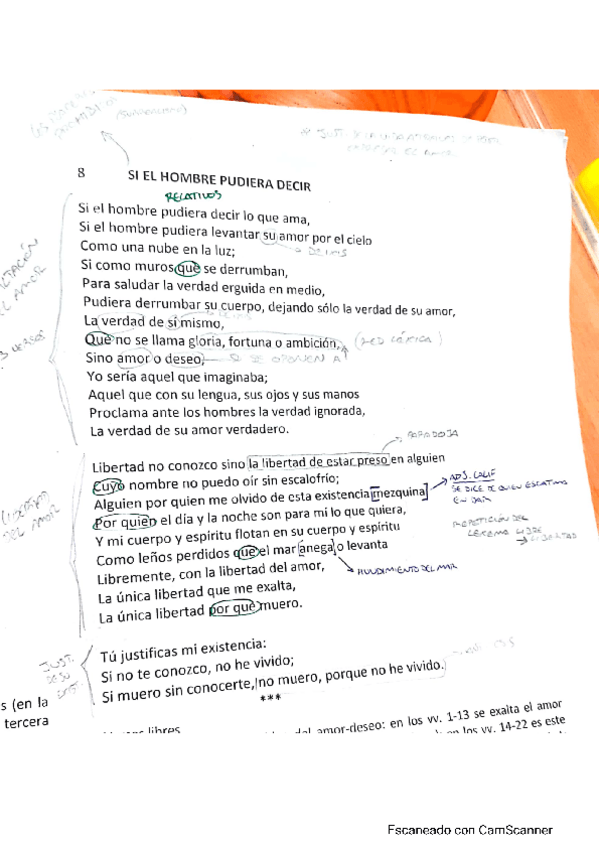 8 SI EL HOMBRE PUDIERA DECIR
RELATIVOS
Si el hombre pudiera decir lo que ama,
Si el hombre pudiera levantar su amor por el cielo
Como una nube en la luz;
Si como muros que se derrumban,
Para saludar la verdad erguida en medio,
Pudiera derrumbar su cuerpo, dejando sólo la verdad de su amor,
La verdad de sí mismo,
Que no se llama gloria, fortuna o ambición, (RED LÉXICA)
Sino amor o deseo, SI SE OPONEN A
Yo sería aquel que imaginaba;
Aquel que con su lengua, sus ojos y sus manos
Proclama ante los hombres la verdad ignorada,
La verdad de su amor verdadero.
PARADOJA
Libertad no conozco sino la libertad de estar preso en alguien
Cuyo nombre no puedo oír sin escalofrío;
ADJ. CALIF
Alguien por quien me olvido de esta existencia mezquina
SE DICE DE QUIEN ESCATIMA
EN DAR
Por quien el día y la noche son para mí lo que quiera,
REPETICIÓN DEL
Y mi cuerpo y espíritu flotan en su cuerpo y espíritu
LEXEMA LIBRE
→ LIBERTAD
Como leños perdidos que el mar anega o levanta
HUNDIMIENTO DEL MAR
Libremente, con la libertad del amor,
La única libertad que me exalta,
La única libertad por que muero.
Tú justificas mi existencia:
JUST.
DE SU
Si no te conozco, no he vivido;
Si muero sin conocerte, no muero, porque no he vivido.
***
s (en la
tercera
libres
del amor-deseo: en los vv. 1-13 se exalta el amor
en los vv. 14-22 es este
Escaneado con CamScanner